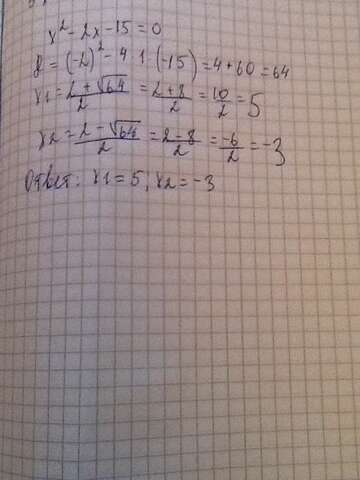 x² - 2x - 15 = 0
D = (-2)² - 4 · 1 · (-15) = 4 + 60 = 64
x1 = (2 + √64)/2 = (2 + 8)/2 = 10/2 = 5
x2 = (2 - √64)/2 = (2 - 8)/2 = -6/2 = -3
Ответ: x1 = 5, x2 = -3